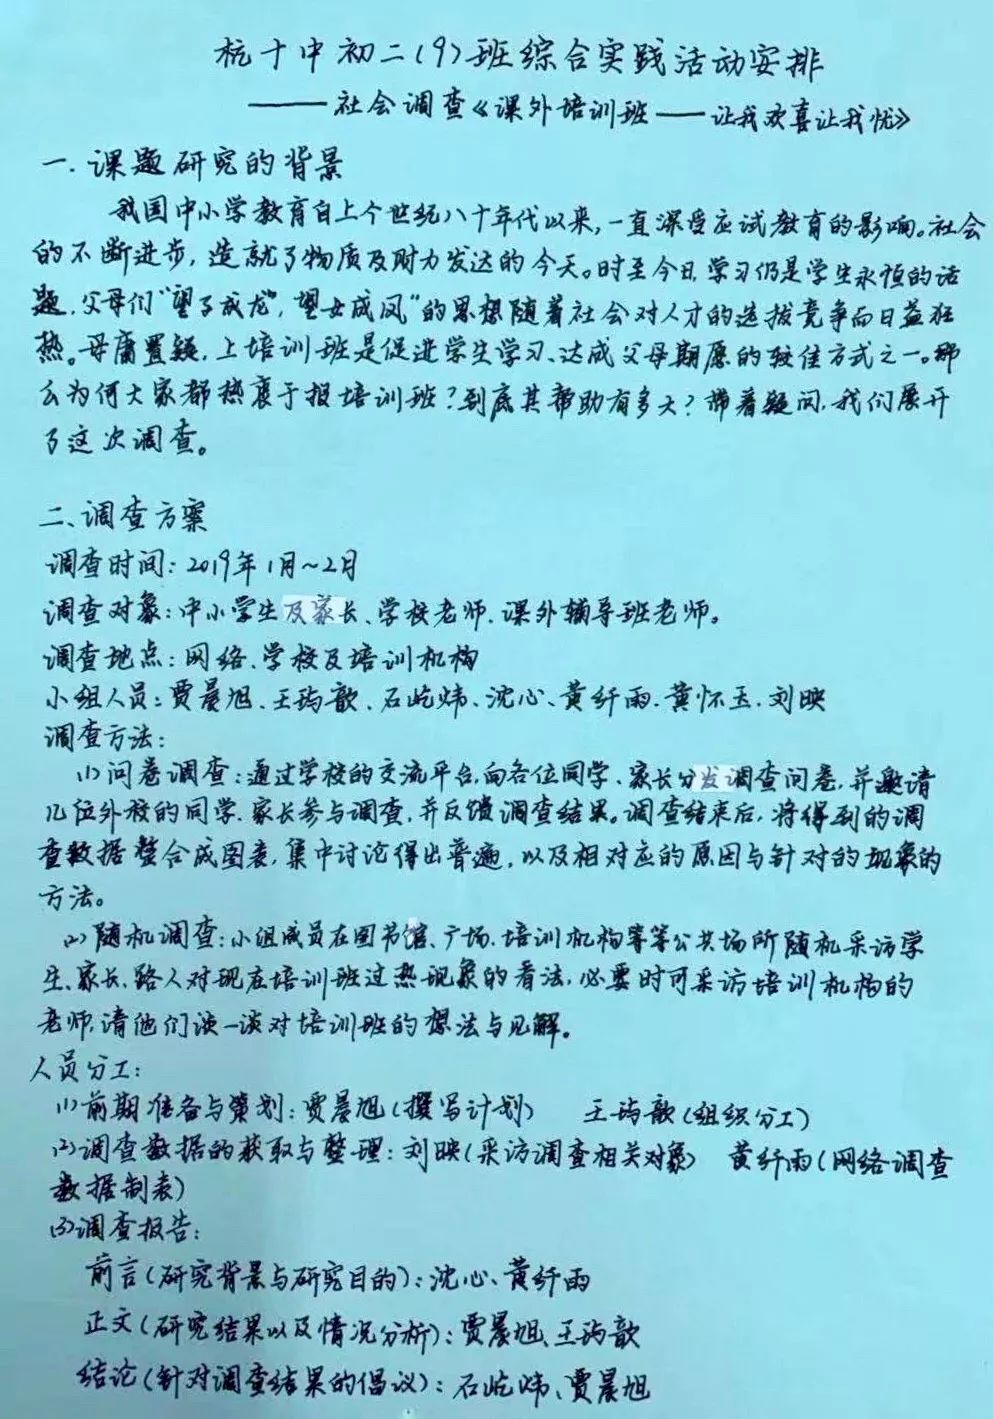 杭十中初二(9)班综合实践活动安排
——社会调查《课外培训班——让我欢喜让我忧》
一.课题研究的背景
我国中小学教育自上个世纪八十年代以来,一直深受应试教育的影响。社会
的不断进步,造就了物质及财力发达的今天。时至今日,学习仍是学生永恒的话
题,父母们“望子成龙”,望女成凤”的思想随着社会对人才的选拔竞争而日益狂
热。毋庸置疑,上培训班是促进学生学习、达成父母期愿的较佳方式之一。那
么为何大家都热衷于报培训班?到底其帮助有多大?带着疑问,我们展开
了这次调查。
二、调查方案
调查时间:2019年1月~2月
调查对象:中小学生及家长、学校老师、课外辅导班老师。
调查地点:网络、学校及培训机构
小组人员:贾晨旭、王玙歆、石屹炜、沈心、黄纤雨、黄怀玉、刘映
调查方法:
(1)问卷调查:通过学校的交流平台,向各位同学、家长分发调查问卷,并邀请
几位外校的同学、家长参与调查,并反馈调查结果。调查结束后,将得到的调
查数据整合成图表,集中讨论得出普遍,以及相对应的原因与针对的现象的
方法。
(2)随机调查:小组成员在图书馆、广场、培训机构等等公共场所随机采访学
生、家长、路人对现在培训班过热现象的看法,必要时可采访培训机构的
老师,请他们谈一谈对培训班的想法与见解。
人员分工:
(1)前期准备与策划:贾晨旭(撰写计划) 王玙歆(组织分工)
(2)调查数据的获取与整理:刘映(采访调查相关对象) 黄纤雨(网络调查
数据制表)
(3)调查报告:
前言(研究背景与研究目的):沈心、黄纤雨
正文(研究结果以及情况分析):贾晨旭、王玙歆
结论(针对调查结果的倡议):石屹炜、贾晨旭